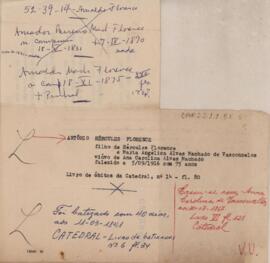 52-39-14- Arnaldo Florence
Amador Bueno Mach. Florence
n. Campinas
18-V-1831
+7-IV-1890
Arnaldo Mach. Florence
n Camp 18-XI-1875-
+ Pinhal
75 anos
ANTÔNIO HÉRCULES FLORENCE
filho de Hércules Florence
e Maria Angélica Alvas Machado de Vasconcelos
viúvo de Ana Carolina Alvas Machado
falecido a 3/09/1916 com 75 anos
Livro de óbitos da Catedral, nº 14 - fl. 80
Foi batizado com 40 dias,
aos 12-09-1841
CATEDRAL - Livro de batismos
nº 6 fl. 34
Casou-se com Anna
Carolina de Vasconcellos
Livro VI fl. 121
Catedral
V.V.